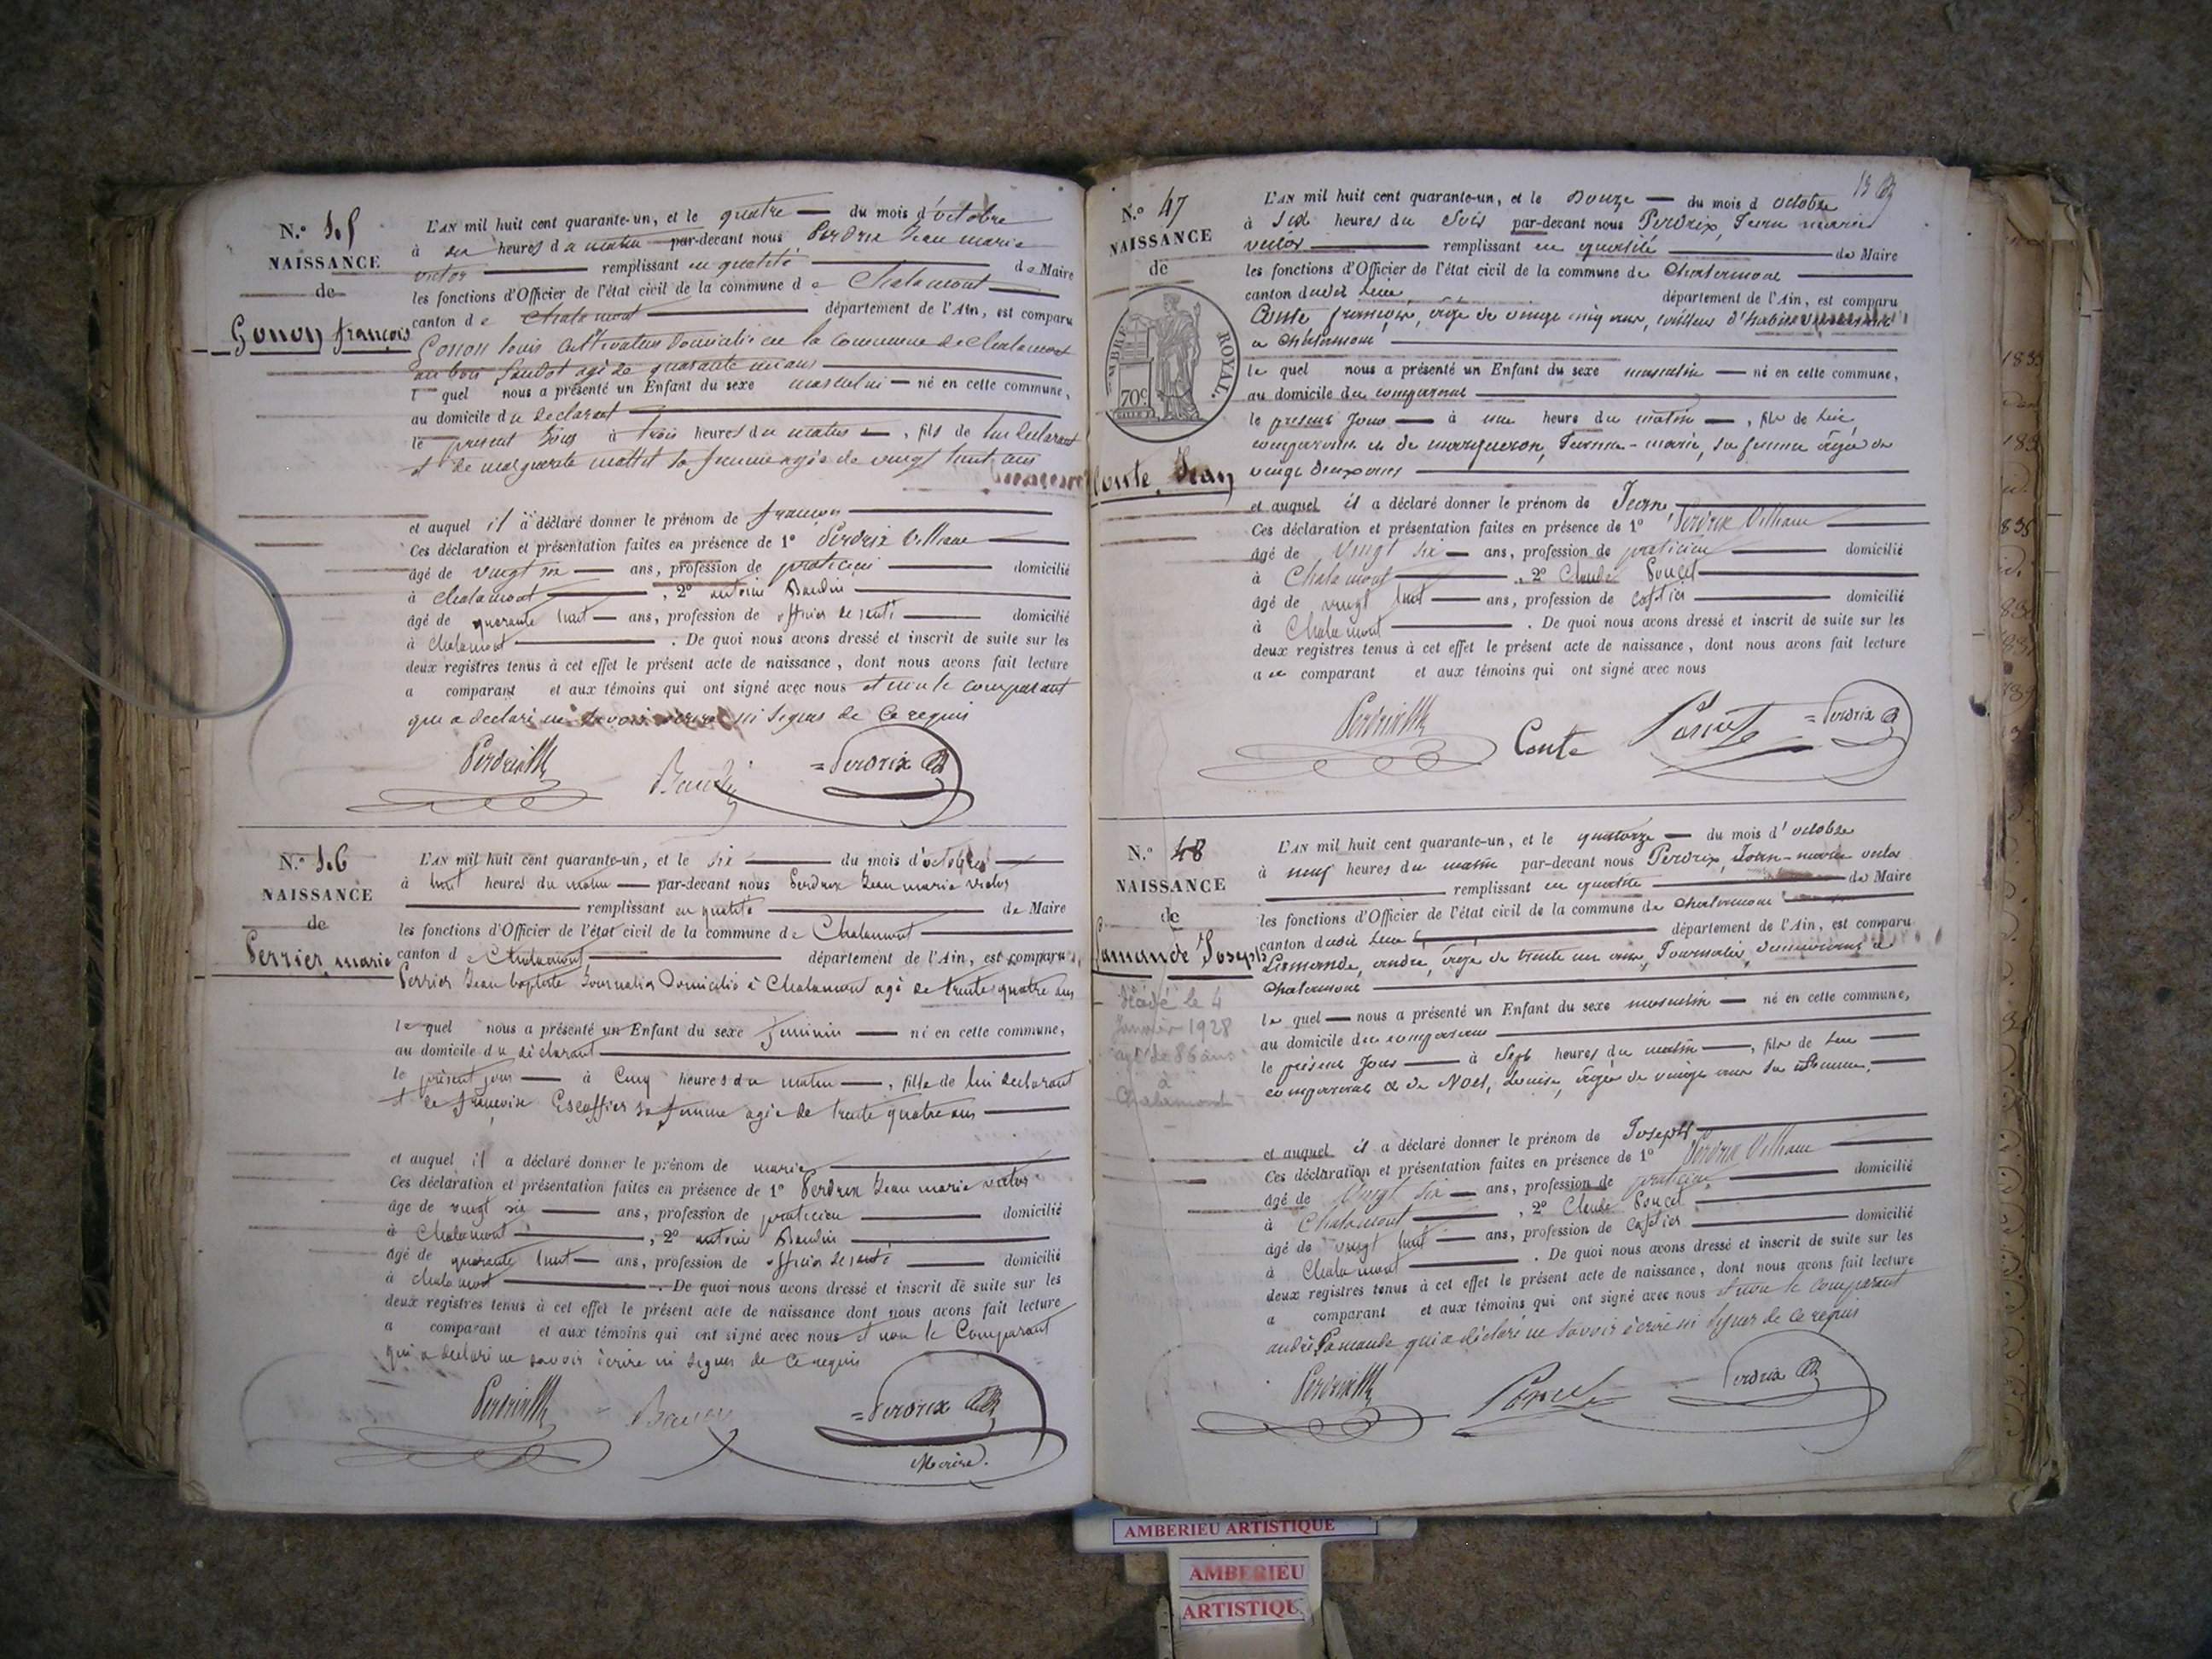 N.° 45
NAISSANCE
de
Gonon françois
L'AN mil huit cent quarante-un, et le quatre du mois d'octobre
à dix heures du matin par-devant nous Perdrix Jean marie
victor remplissant en qualité de Maire
les fonctions d'Officier de l'état civil de la commune de Chalamont
canton de Chalamont département de l'Ain, est comparu
Gonon louis Cultivateur Domicilié en la commune de Chalamont
au bois agé de quarante un ans
le quel nous a présenté un Enfant du sexe masculin né en cette commune,
au domicile du declarant
le present Jour à trois heures du matin, fils de lui declarant
et de marguerite mattet sa femme agée de vingt huit ans
et auquel il a déclaré donner le prénom de françois
Ces déclaration et présentation faites en présence de 1° Perdrix Villiam
âgé de vingt six ans, profession de praticien domicilié
à chalamont, 2° antoine Baudin
âgé de quarante huit ans, profession de officier de santé domicilié
à chalamont. De quoi nous avons dressé et inscrit de suite sur les
deux registres tenus à cet effet le présent acte de naissance, dont nous avons fait lecture
a comparant et aux témoins qui ont signé avec nous et non le comparant
qui a declaré ne savoir écrire ni signer de ce requis
Baudin =Perdrix
N.° 46
NAISSANCE
de
Perrier marie
L'AN mil huit cent quarante-un, et le six du mois d'octobre
à huit heures du matin par-devant nous Perdrix Jean marie victor
remplissant en qualité de Maire
les fonctions d'Officier de l'état civil de la commune de Chalamont
canton de Chalamont département de l'Ain, est comparu
Perrier Jean baptiste Journalier Domicilié à Chalamont agé de trente quatre ans
le quel nous a présenté un Enfant du sexe feminin né en cette commune,
au domicile du déclarant
le présent jour à Cinq heures du matin, fille de lui declarant
et de françoise Escoffier sa femme agée de trente quatre ans
et auquel il a déclaré donner le prénom de marie
Ces déclaration et présentation faites en présence de 1° Perdrix Jean marie victor
âgé de vingt six ans, profession de praticien domicilié
à Chalamont, 2° antoine Baudin
âgé de quarante huit ans, profession de officier de santé domicilié
à chalamont. De quoi nous avons dressé et inscrit de suite sur les
deux registres tenus à cet effet le présent acte de naissance dont nous avons fait lecture
a comparant et aux témoins qui ont signé avec nous et non le Comparant
qui a declaré ne savoir écrire ni signer de ce requis
=Perdrix
Maire.
13
N.° 47
NAISSANCE
de
TIMBRE ROYAL.
70c
Conte Jean
L'AN mil huit cent quarante-un, et le Douze du mois d octobre
à six heures du soir par-devant nous Perdrix, Jean marie
victor remplissant en qualité de Maire
les fonctions d'Officier de l'état civil de la commune de Chalamont
canton dudit lieu département de l'Ain, est comparu
Conte françois, âgé de vingt cinq ans, tailleur d'habits
a Chalamont
le quel nous a présenté un Enfant du sexe masculin né en cette commune,
au domicile du comparant
le présent Jour à une heure du matin, fils de lui
comparant et de marqueron, Jeanne-marie, sa femme âgée de
vingt deux ans
et auquel il a déclaré donner le prénom de Jean
Ces déclaration et présentation faites en présence de 1° Perdrix Villiam
âgé de vingt six ans, profession de praticien domicilié
à Chalamont, 2° Claude Poncet
âgé de vingt huit ans, profession de caftier domicilié
à Chalamont. De quoi nous avons dressé et inscrit de suite sur les
deux registres tenus à cet effet le présent acte de naissance, dont nous avons fait lecture
a u comparant et aux témoins qui ont signé avec nous
Conte Poncet =Perdrix
N.° 48
NAISSANCE
de
Lamande Joseph
Décédé le 4
Janvier 1928
agé de 86 ans
à
Chalamont
L'AN mil huit cent quarante-un, et le quatorze du mois d'octobre
à neuf heures du matin par-devant nous Perdrix, Jean-marie victor
remplissant en qualité de Maire
les fonctions d'Officier de l'état civil de la commune de Chalamont
canton dudit lieu département de l'Ain, est comparu
Lamande, andré, âgé de trente un ans, Journalier, demeurant à
Chalamont
le quel nous a présenté un Enfant du sexe masculin né en cette commune,
au domicile du comparant
le présent Jour à sept heures du matin, fils de lui
comparant & de Noël, Louise, âgée de vingt ans sa femme,
et auquel il a déclaré donner le prénom de Joseph
Ces déclaration et présentation faites en présence de 1° Perdrix Villiam
âgé de vingt six ans, profession de praticien domicilié
à Chalamont, 2° Claude Poncet
âgé de vingt huit ans, profession de Caftier domicilié
à Chalamont. De quoi nous avons dressé et inscrit de suite sur les
deux registres tenus à cet effet le présent acte de naissance, dont nous avons fait lecture
a comparant et aux témoins qui ont signé avec nous et non le comparant
andré Lamande qui a déclaré ne savoir écrire ni signer de ce requis
Poncet Perdrix
AMBERIEU ARTISTIQUE
AMBERIEU
ARTISTIQUE